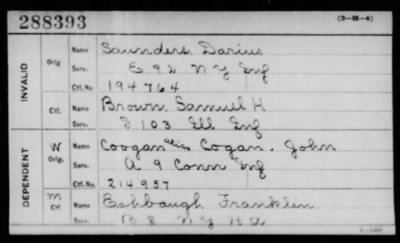 288393
(3-28-4)
INVALID
Orig
Name Saunders, Darius
Serv. E 92 N Y Inf
Ctf. No. 194764
Ctf.
Name Brown Samuel H
Serv. D 103 Ill Inf
DEPENDENT
W Orig.
Name Coogan alias Cogan. John
Serv. A 9 Conn Inf
Ctf. No. 214937
M Ctf.
Name Eshbaugh Franklin
Serv. B 8 N Y H A